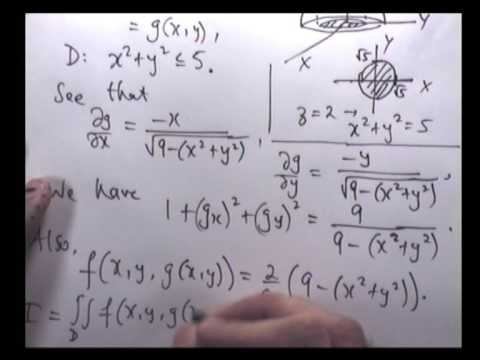 = g(x,y),
D: x² + y² ≤ 5.
See that
∂g/∂x = -x/√(9-(x²+y²)),
Y
X
Y
√5
X
√5
z=2 → x²+y²=5
∂g/∂y = -y/√(9-(x²+y²)).
We have
1+(gx)²+(gy)² = 9/(9-(x²+y²)).
Also,
f(x,y,g(x,y)) = 2/ (9-(x²+y²)).
I = ∬ f(x,y,g(
D